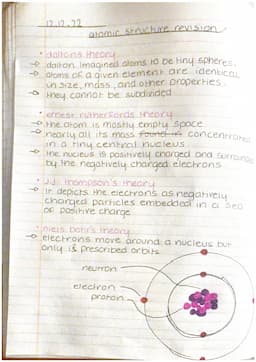 12.12.22
atomic structure revision
• daltons theory
→ dalton imagined atoms to be tiny spheres.
→ atoms of a given element are identical
in size, mass, and other properties
→ they cannot be subdivided
• ernest rutherfords theory
→ the atom is mostly empty space
→ nearly all its mass found in concentrated
in a tiny central nucleus
→ the nucleus is positively charged and surrounded
by the negatively charged electrons
• J.J. thompson's theory
→ it depicts the electrons as negatively
charged particles embedded in a sea
of positive charge
• niels bohr's theory
→ electrons move around a nucleus but
only in prescribed orbits
neutron
electron
proton